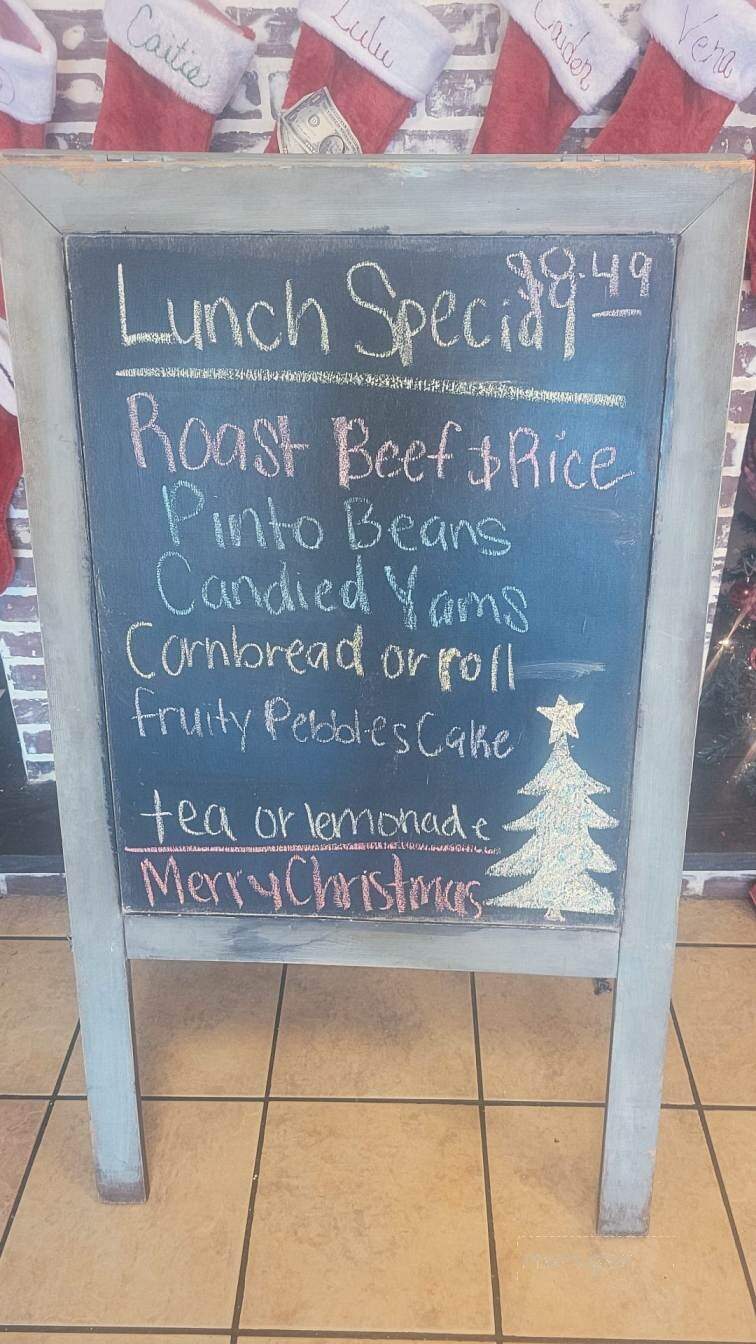 Caitie
Lulu
Caiden
Vera
Lunch Special
Roast Beef & Rice
Pinto Beans
Candied Yams
Cornbread or roll
fruity Pebbles Cake
tea or lemonade
Merry Christmas